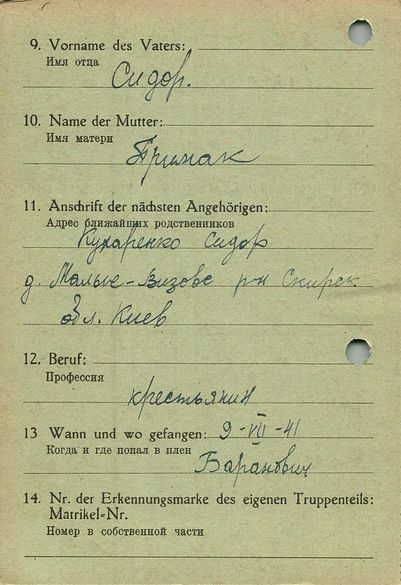 9. Vorname des Vaters:
Имя отца
Сидор.
10. Name der Mutter:
Имя матери
Примак
11. Anschrift der nächsten Angehörigen:
Адрес ближайших родственников
Кухаренко Сидор
д. Малые-Визовс р-н Скирек
обл. Киев
12. Beruf:
Профессия
крестьянин
13 Wann und wo gefangen: 9-VII-41
Когда и где попал в плен
Баранович
14. Nr. der Erkennungsmarke des eigenen Truppenteils:
Matrikel-Nr.
Номер в собственной части